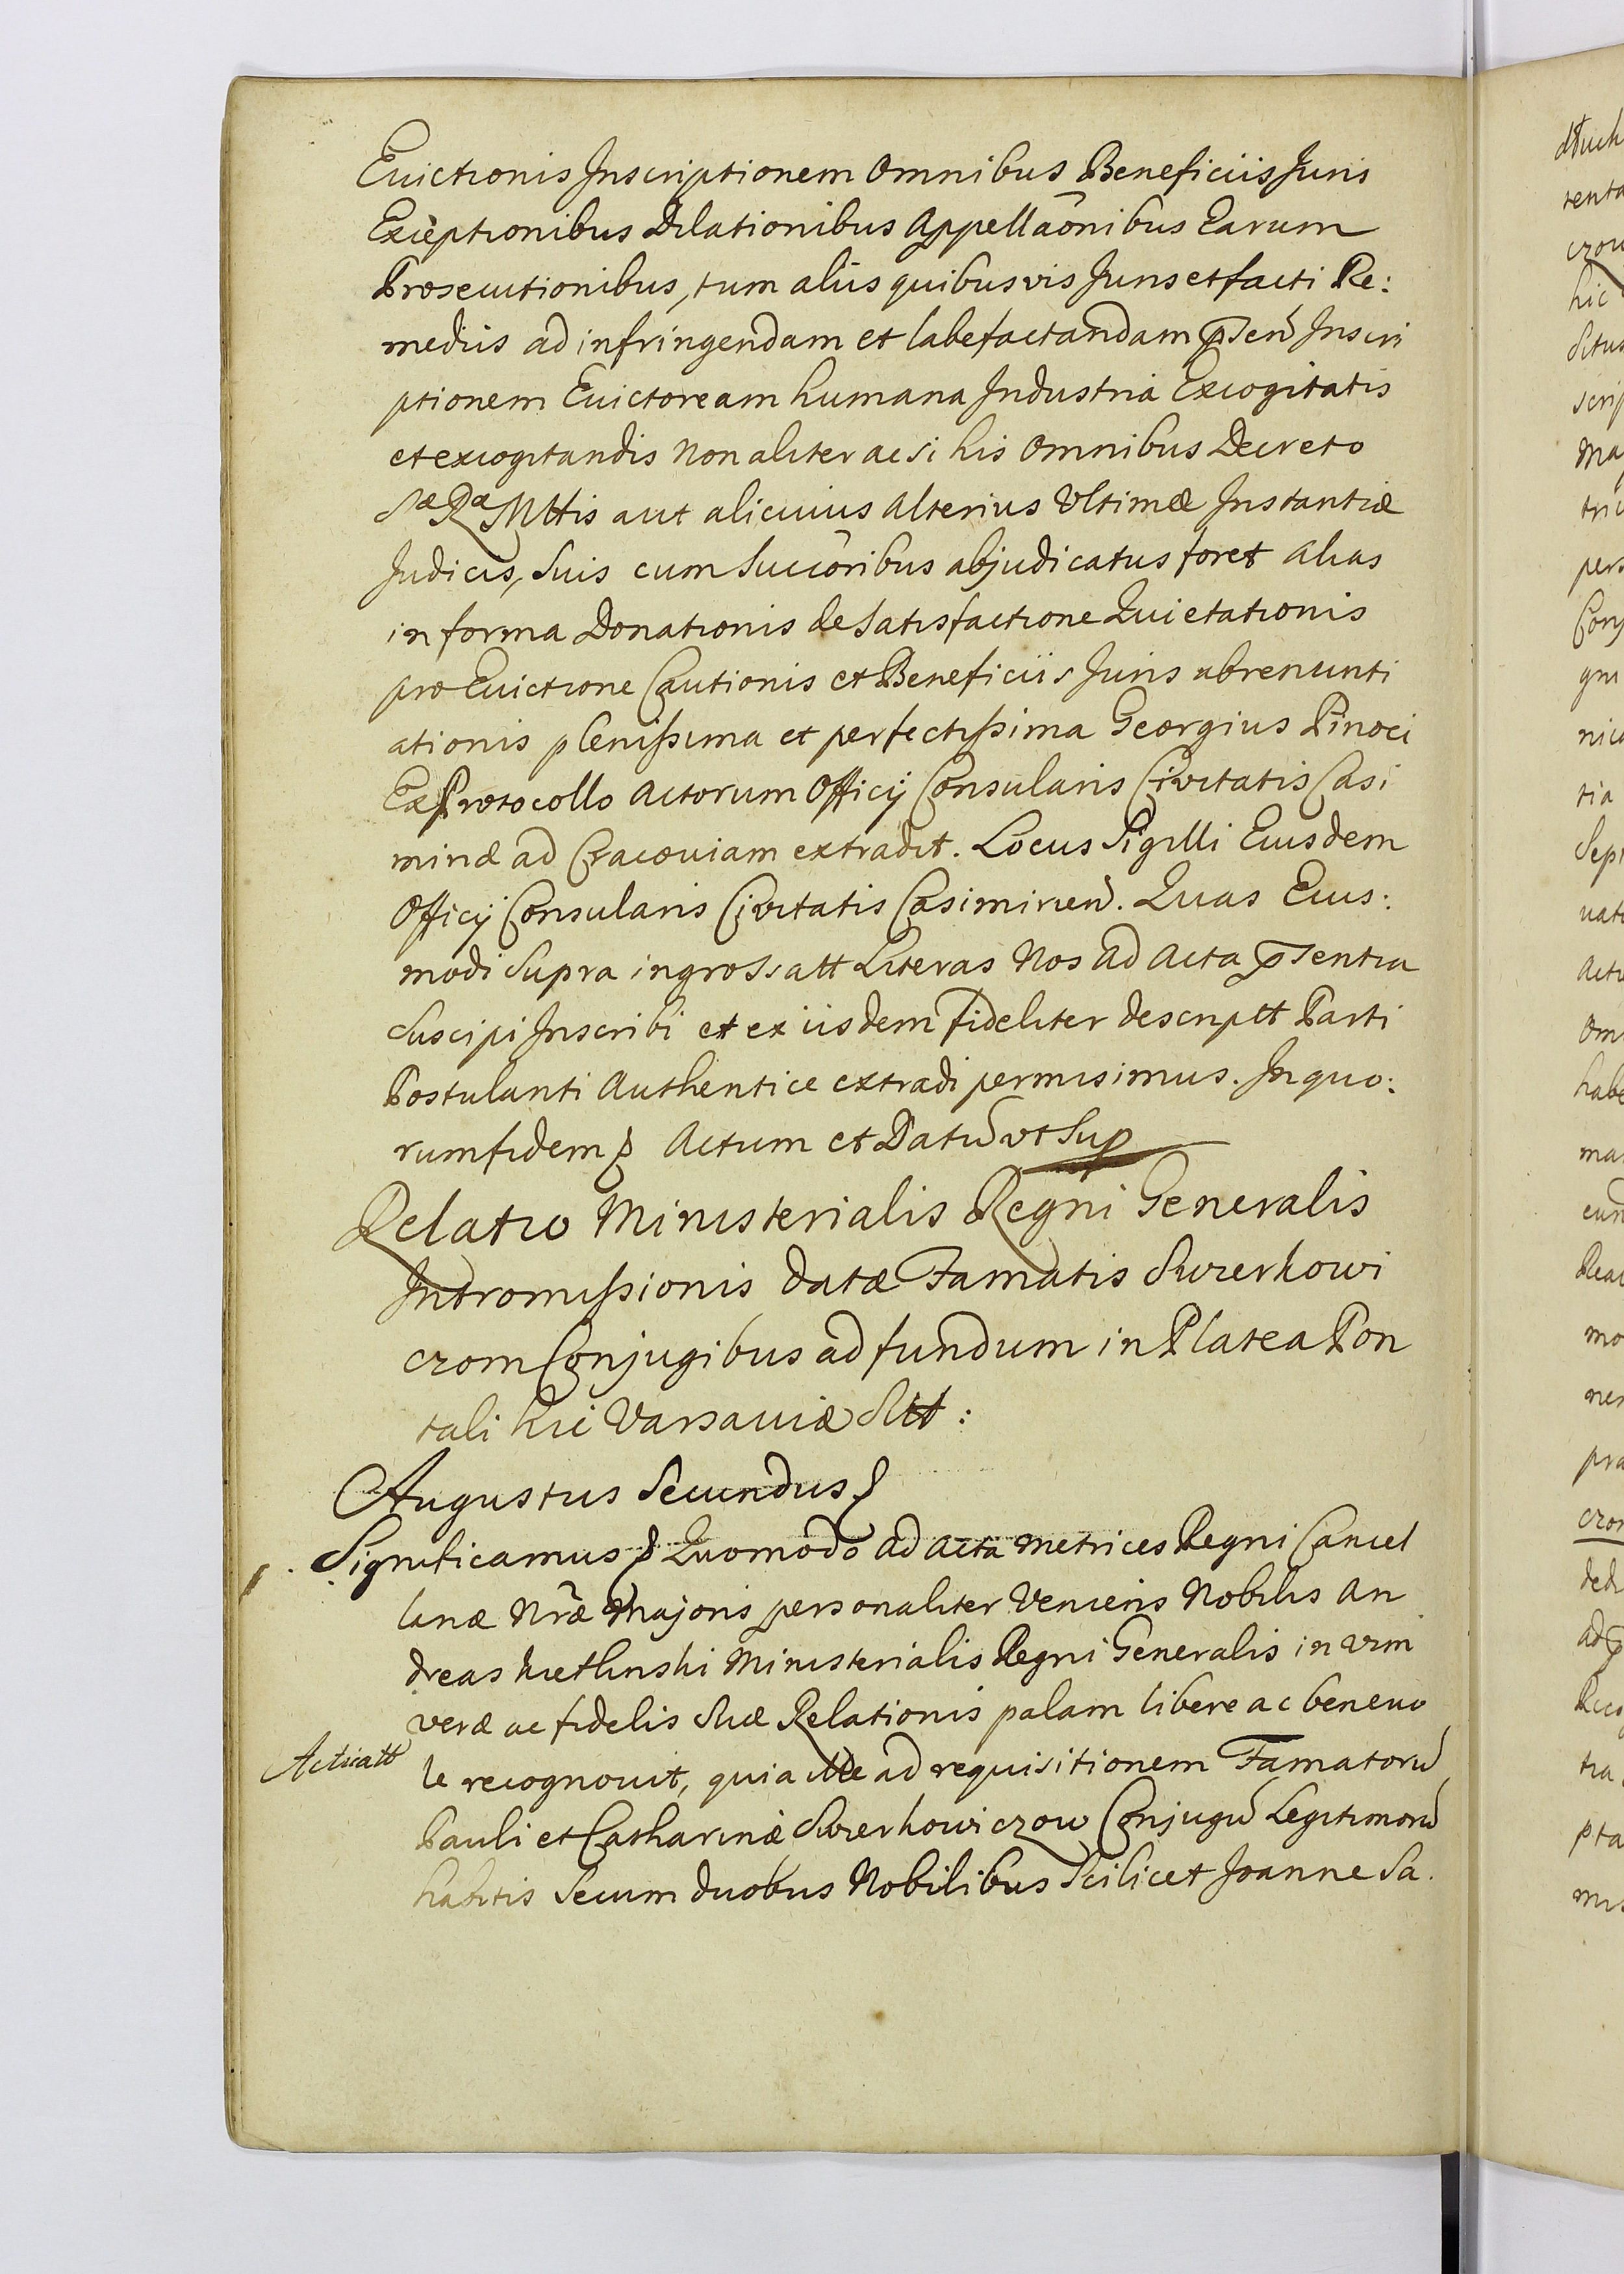 Euictionis Inscriptionem Omnibus Beneficiis Juris
Exceptionibus Dilationibus Appellaõnibus Earum
Prosecutionibus, tum aliis quibusvis Juris et facti Re:
mediis ad infringendam et labefactandam pñten Inscri
ptionem Euictoream humana Industria Excogitatis
et excogitandis Non aliter ac si his Omnibus Decreto
Sæ Ræ Mttis aut alicuius Alterius Vltimæ Instantiæ
Judicis, Suis cum Succõribus abjudicatus foret Alias
in forma Donationis de Satisfactione Quietationis
pro Euictione Cautionis et Beneficiis Juris abrenunti
ationis plenissima et perfectissima Georgius Pinoci
Ex Protocollo Actorum Officij Consularis Civitatis Casi
miriæ ad Cracoviam extradit. Locus Sigilli Eiusdem
Officij Consularis Civitatis Casimirien. Quas Eius:
modi Supra ingrossatt Literas Nos Ad Acta pñtentia
Suscipi Inscribi et ex iisdem fideliter descriptt Parti
Postulanti Authentice extradi permisimus. In quo:
rum fidem Actum et Datũ vt Sup
Relatio Ministerialis Regni Generalis
Intromissionis datæ Famatis Swierkowi
czom Conjugibus ad fundum in Platea Pon
tali hic Varsaviæ Sitt:
Augustus Secundus
Significamus Quomodo ad Acta Metrices Regni Cancel
lariæ Nrãe Majoris personaliter Veniens Nobilis An
dreas Kietlinski Ministerialis Regni Generalis in vim
veræ ac fidelis Suæ Relationis palam libere ac beneuo
Acticatt
le recognovit, quia ille ad requisitionem Famatorũ
Pauli et Catharinæ Swierkowiczow Conjugũ Legitimorũ
habitis Secum duobus Nobilibus Scilicet Joanne Sa.